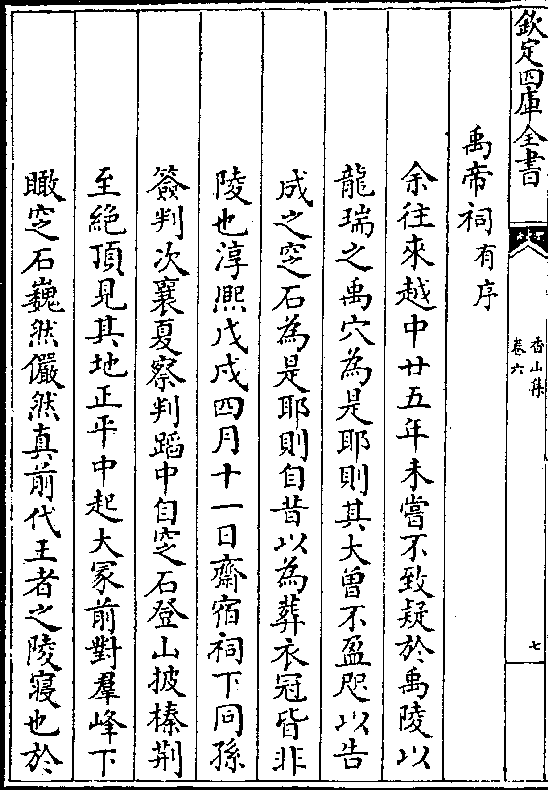 欽定四庫全書
香山集
卷六
七
禹帝祠有序
余往來越中廿五年未嘗不致疑於禹陵以
龍瑞之禹穴為是耶則其大曾不盈咫以告
成之窆石為是耶則自昔以為葬衣冠皆非
陵也淳熙戊戌四月十一日齋宿祠下同孫
簽判次襄夏察判蹈中自窆石登山披榛荆
至絶頂見其地正平中起大冢前對羣峰下
瞰窆石巍然儼然真前代王者之陵寢也於